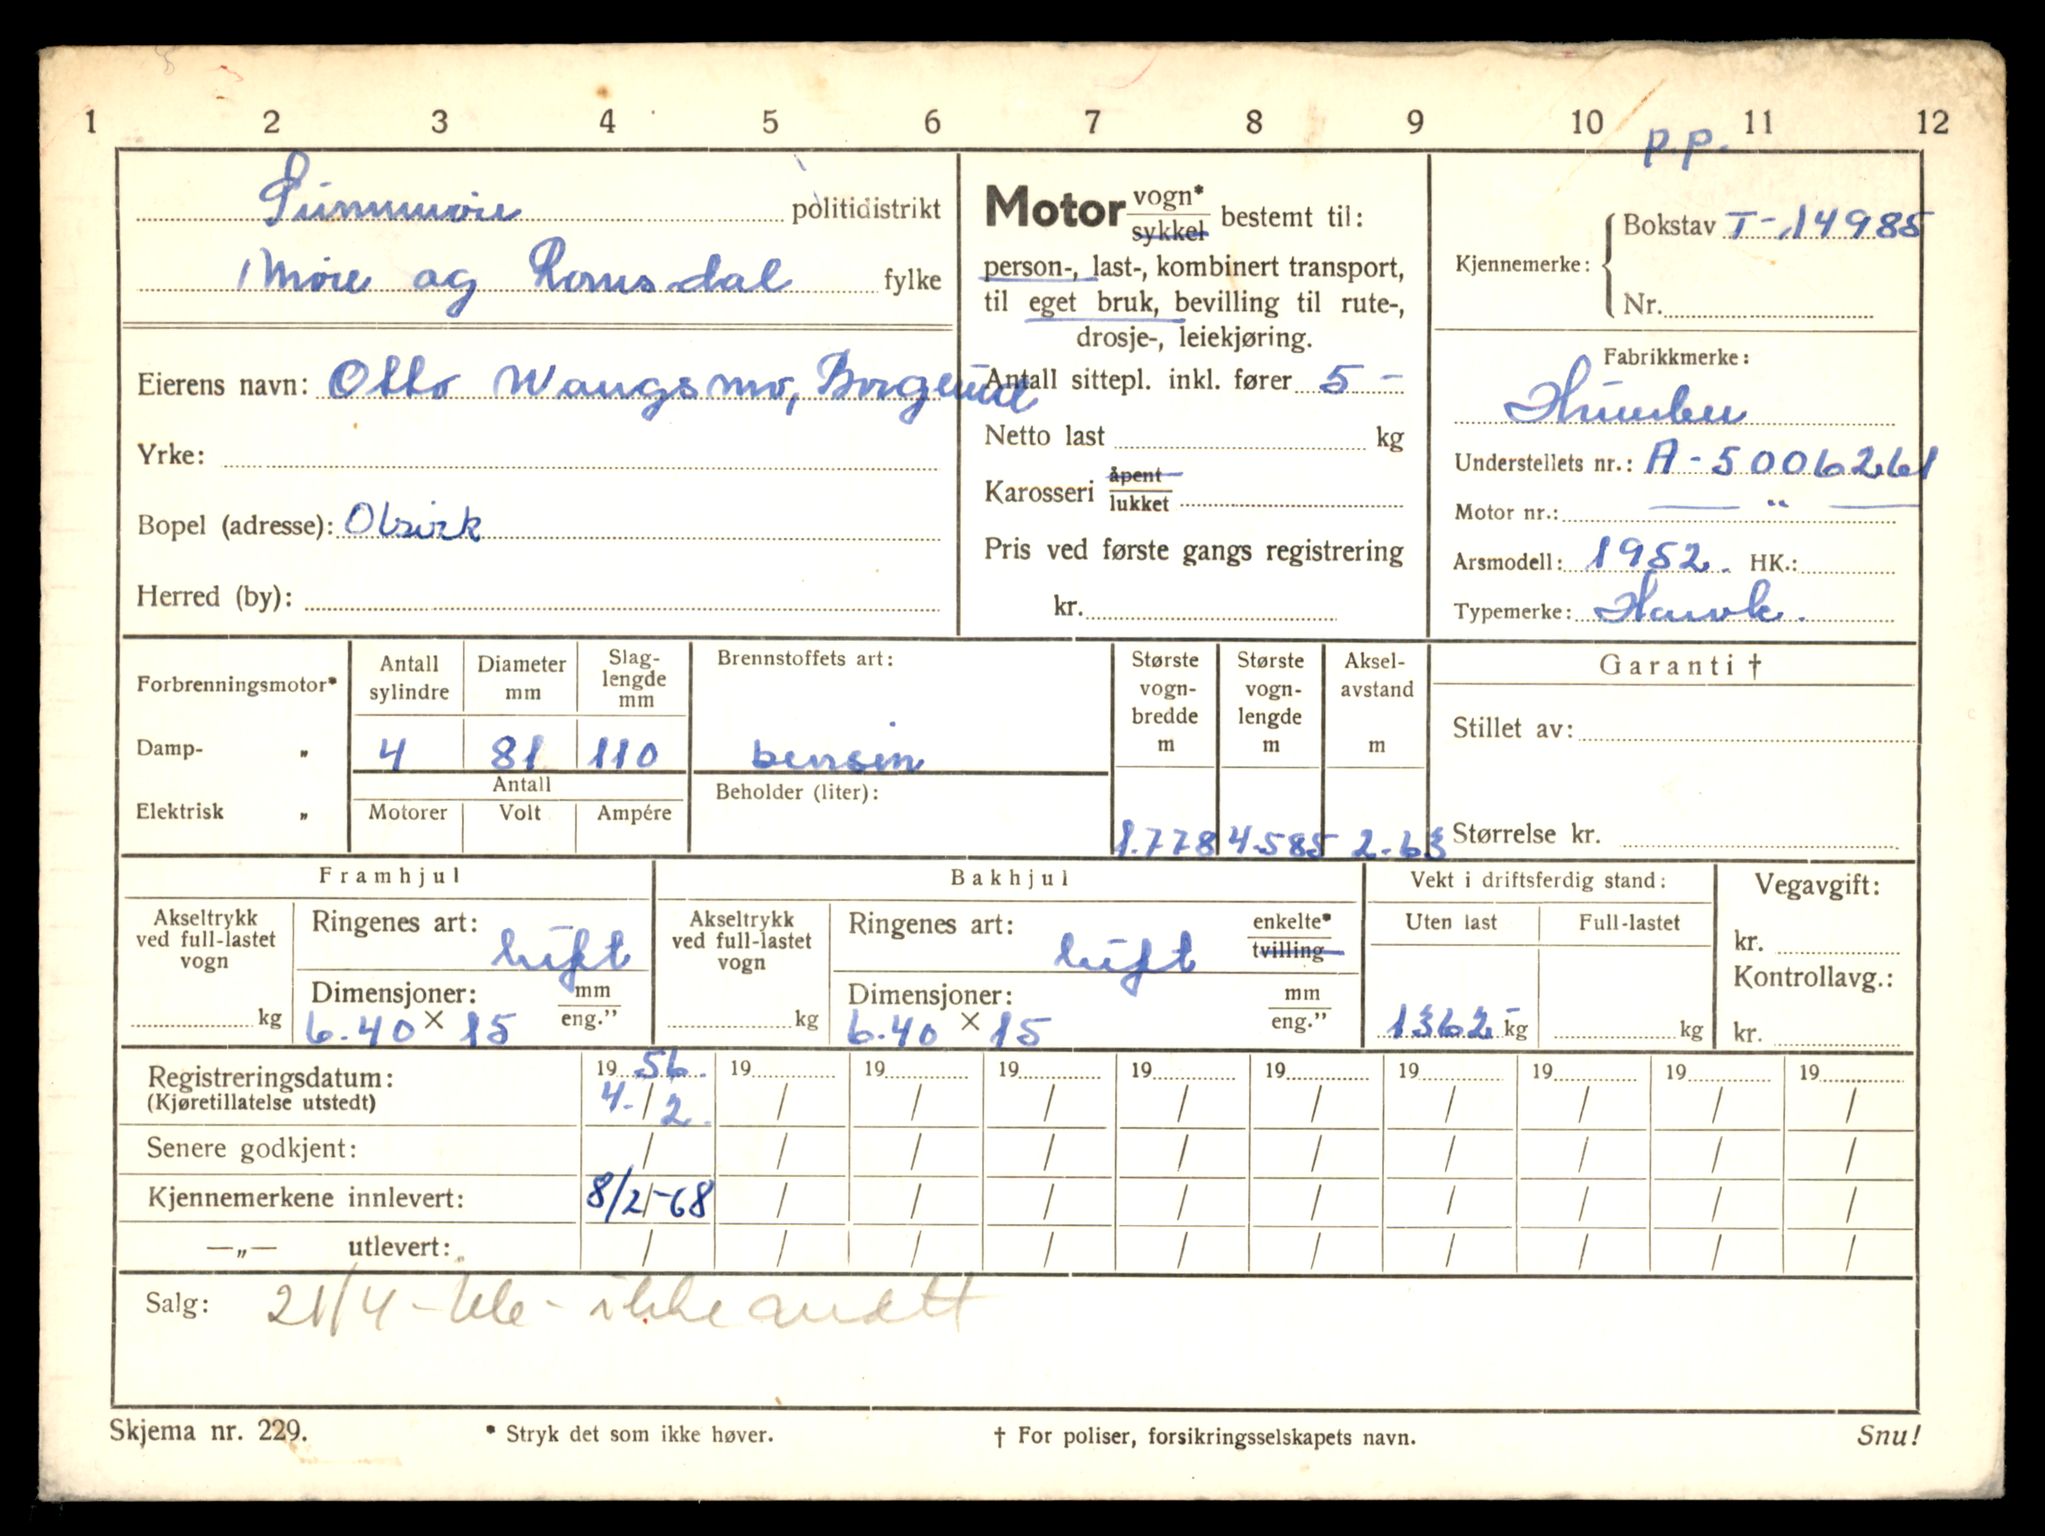 1 2 3 4 5 6 7 8 9 10 11 12
p.p.
Sunnmøre politidistrikt
Møre og Romsdal fylke
Eierens navn: Otto Wangsmo, Borgund
Yrke:
Bopel (adresse):
Herred (by):
Motor vogn* sykkel bestemt til:
person-, last-, kombinert transport,
til eget bruk, bevilling til rute-,
drosje-, leiekjøring.
Antall sittepl. inkl. fører 5 -
Netto last kg
Karosseri åpent lukket
Pris ved første gangs registrering
kr.
Kjennemerke: Bokstav T-14985
Nr.
Fabrikkmerke:
Humber
Understellets nr.: A-5006261
Motor nr.: — " —
Arsmodell: 1952. HK.:
Typemerke: Hawk.
Forbrenningsmotor*
Damp- „
Elektrisk „
Antall sylindre
Diameter mm
Slaglengde mm
4 81 110
Antall
Motorer Volt Ampére
Brennstoffets art:
bensin
Beholder (liter):
Største vognbredde m
1.778
Største vognlengde m
4.585
Akselavstand m
2.63
Garanti †
Stillet av:
Størrelse kr.
Framhjul
Akseltrykk ved full-lastet vogn
kg
Ringenes art: luft
Dimensjoner: mm eng."
6.40 × 15
Bakhjul
Akseltrykk ved full-lastet vogn
kg
Ringenes art: luft enkelte* tvilling
Dimensjoner: mm eng."
6.40 × 15
Vekt i driftsferdig stand:
Uten last Full-lastet
1362 kg kg
Vegavgift:
kr.
Kontrollavg.:
kr.
Registreringsdatum: 19 56. 19 19 19 19 19 19 19 19 19
(Kjøretillatelse utstedt) 4. / 2. / / / / / / / / /
Senere godkjent: / / / / / / / / / /
Kjennemerkene innlevert: 8/2-68 / / / / / / / / /
—„— utlevert: / / / / / / / / / /
Salg: 21/4 - ikke
Skjema nr. 229. * Stryk det som ikke høver. † For poliser, forsikringsselskapets navn. Snu!